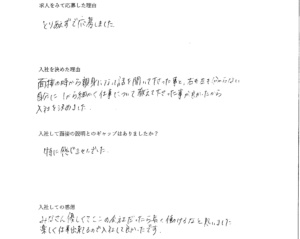 求人をみて応募した理由
とりあえずで応募しました
入社を決めた理由
面接の時から親身になって話を聞いて下さった事と、右も左も分からない
自分に1から細かく仕事について教えて下さった事が良かったから
入社を決めました。
入社して面接の説明とのギャップはありましたか?
特に感じませんでした。
入社しての感想
みなさん優しくてここの会社だったら長く働けるなと思いました
楽しく仕事出来るので入社して良かったです。